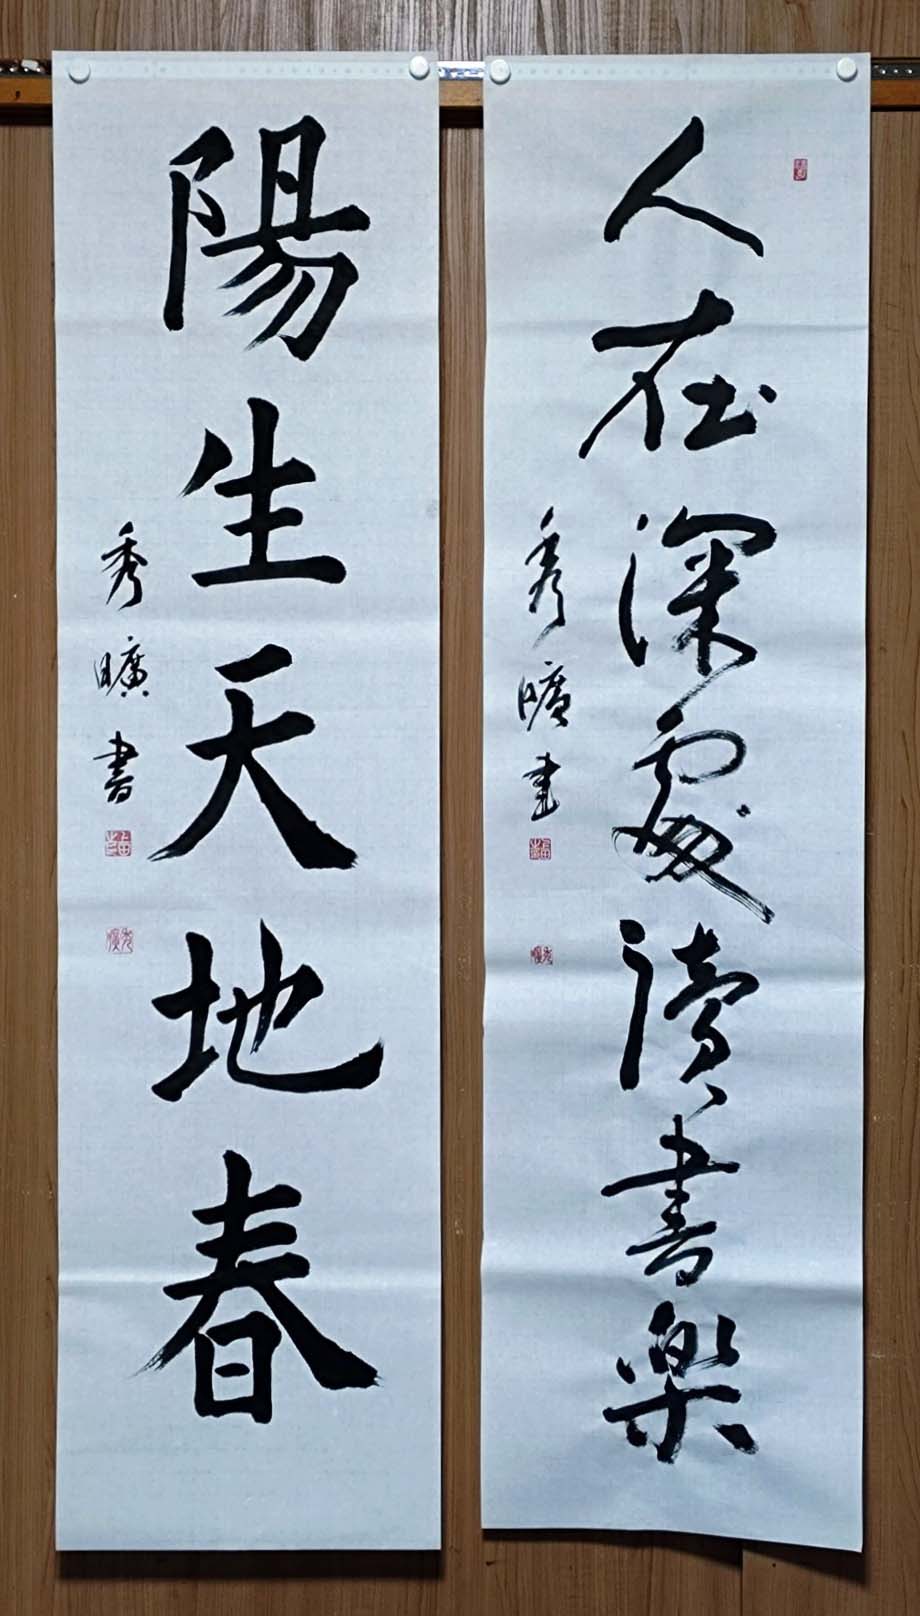 人在深處讀書樂
秀曠書
陽生天地春
秀曠書